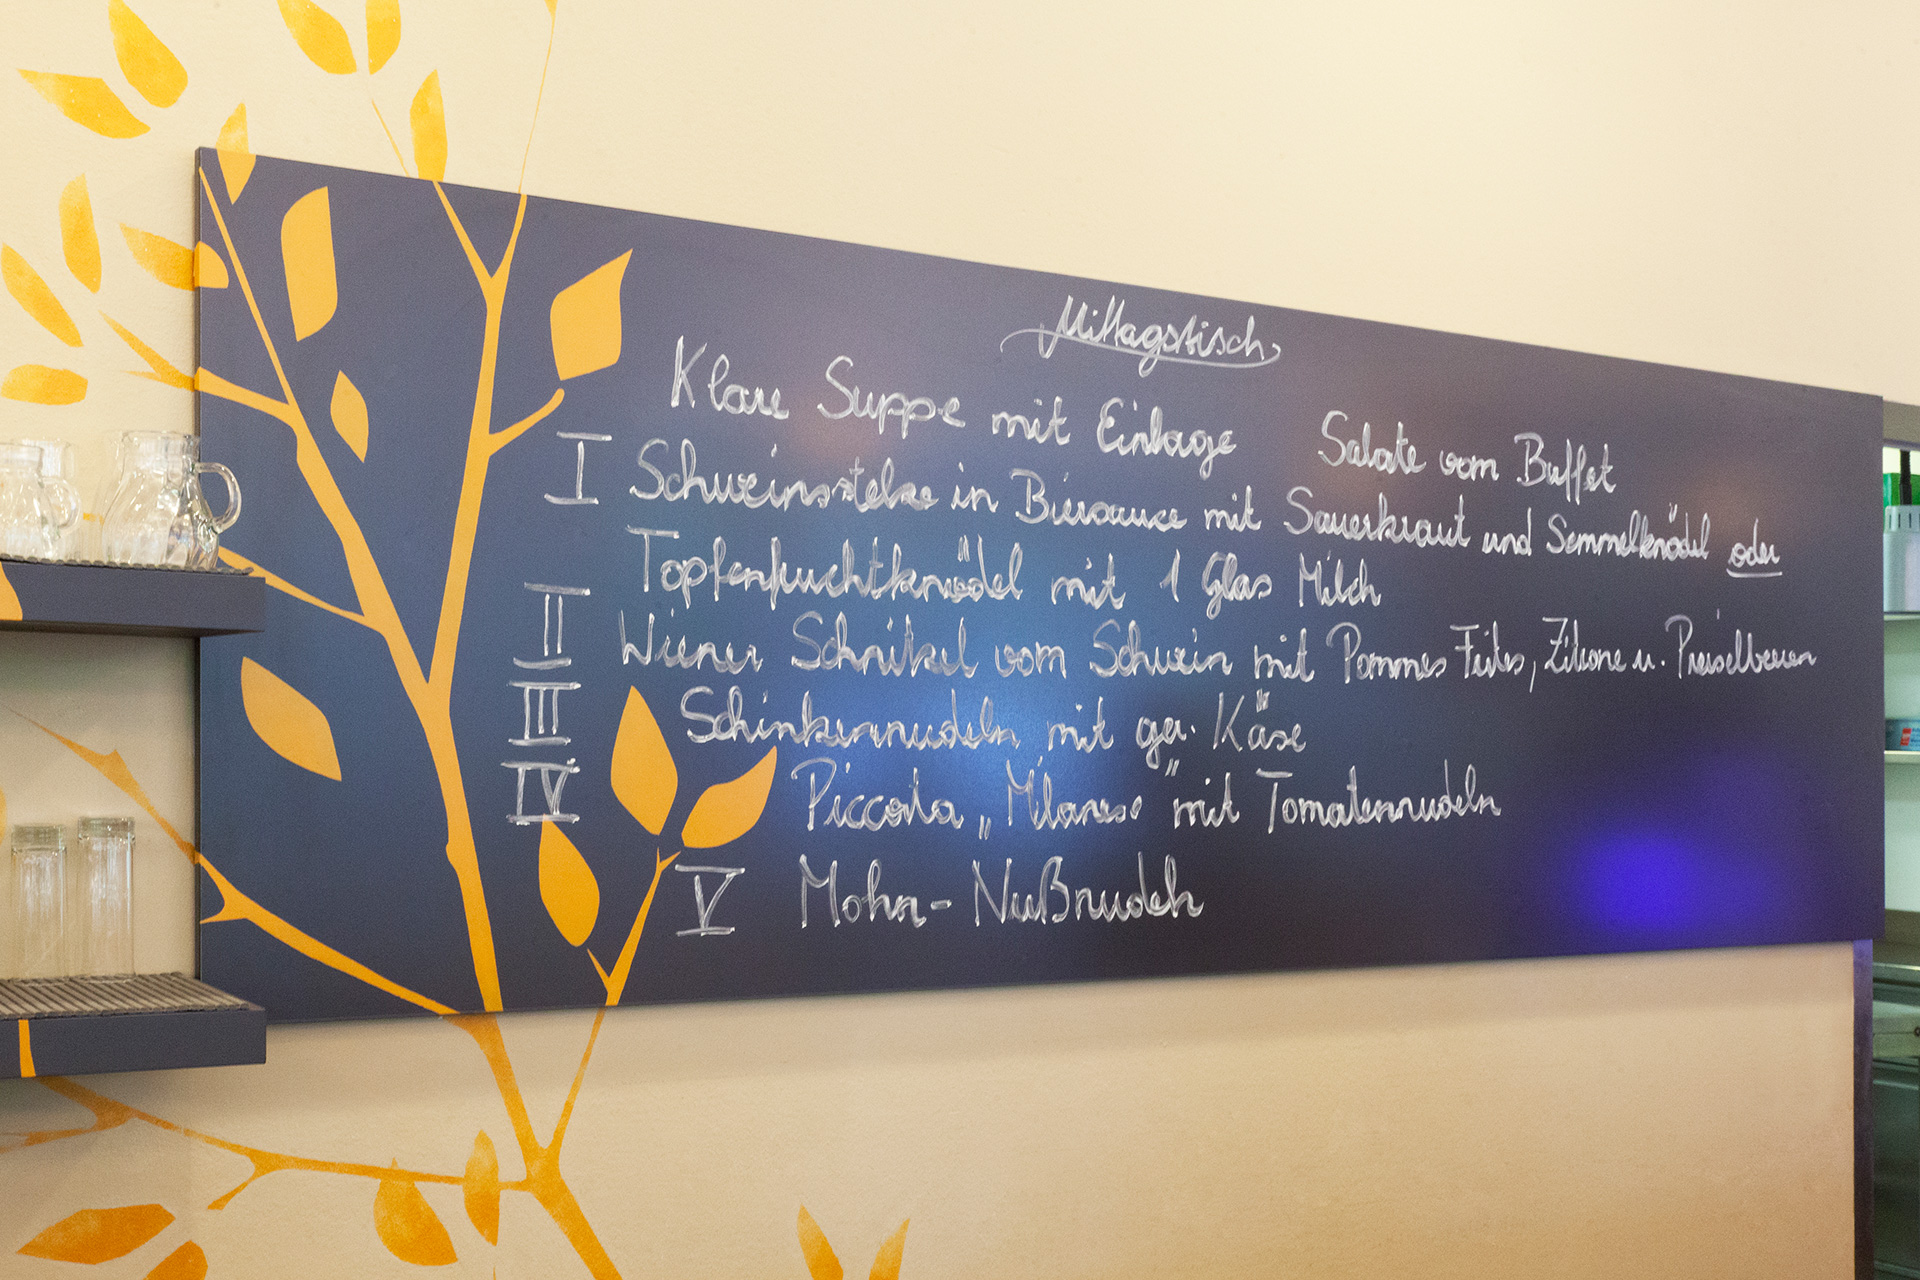 Mittagstisch
Klare Suppe mit Einlage Salate vom Buffet
I Schweinsstelze in Biersauce mit Sauerkraut und Semmelknödel oder
Topfenfruchtknödel mit 1 Glas Milch
II Wiener Schnitzel vom Schwein mit Pommes Frites, Zitrone u. Preiselbeeren
III Schinkennudeln mit ger. Käse
IV Piccata „Milanese" mit Tomatennudeln
V Mohn-Nußnudeln